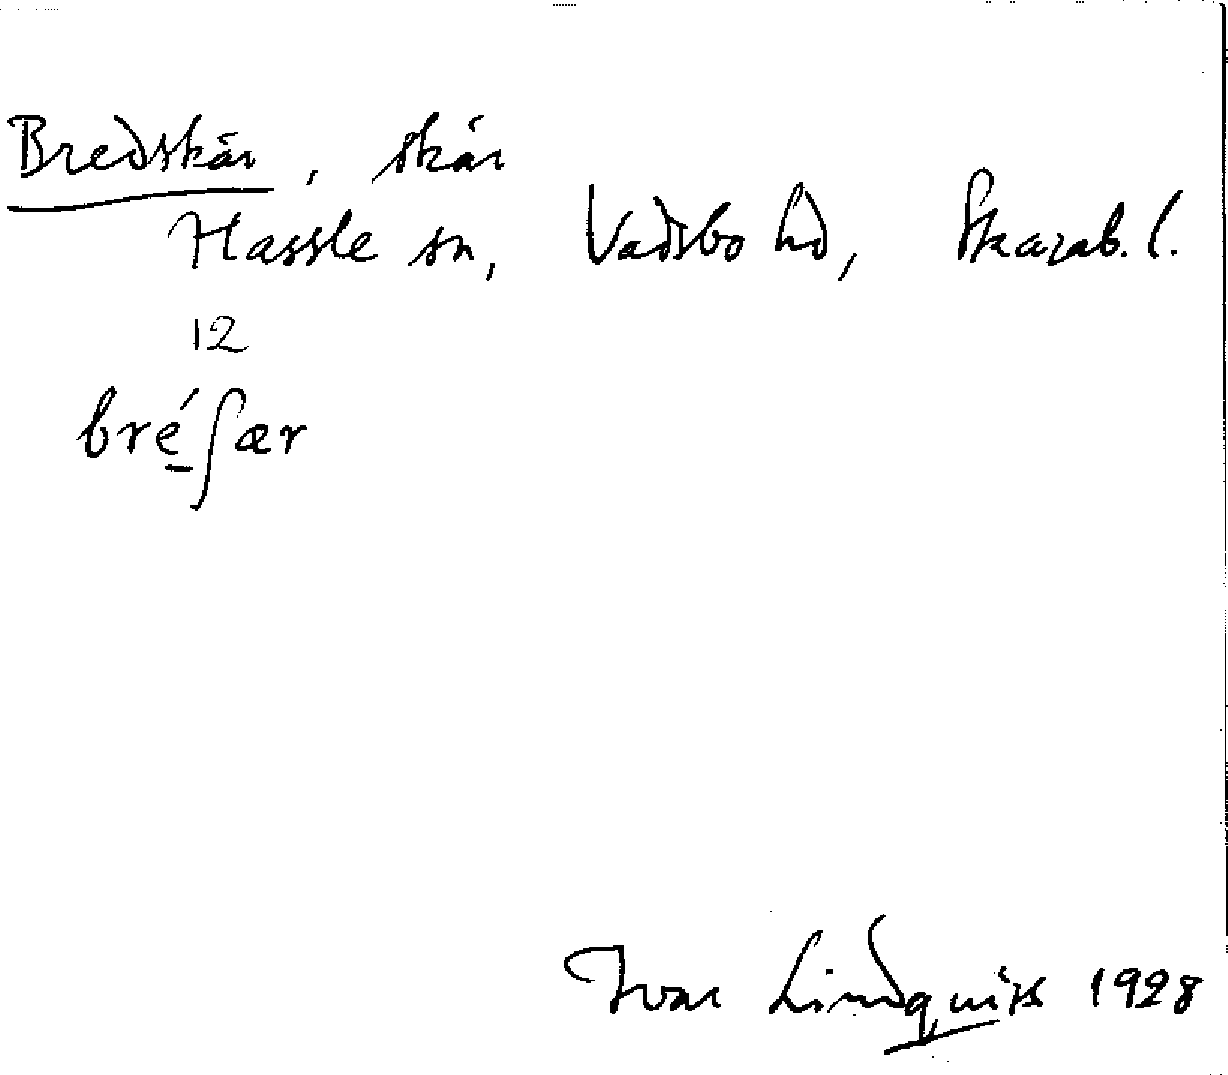 Bredskär, skär
Hassle sn, Vadsbo hd, Skarab. l.
12
bré̱ʃær
Ivar Lindquist 1928